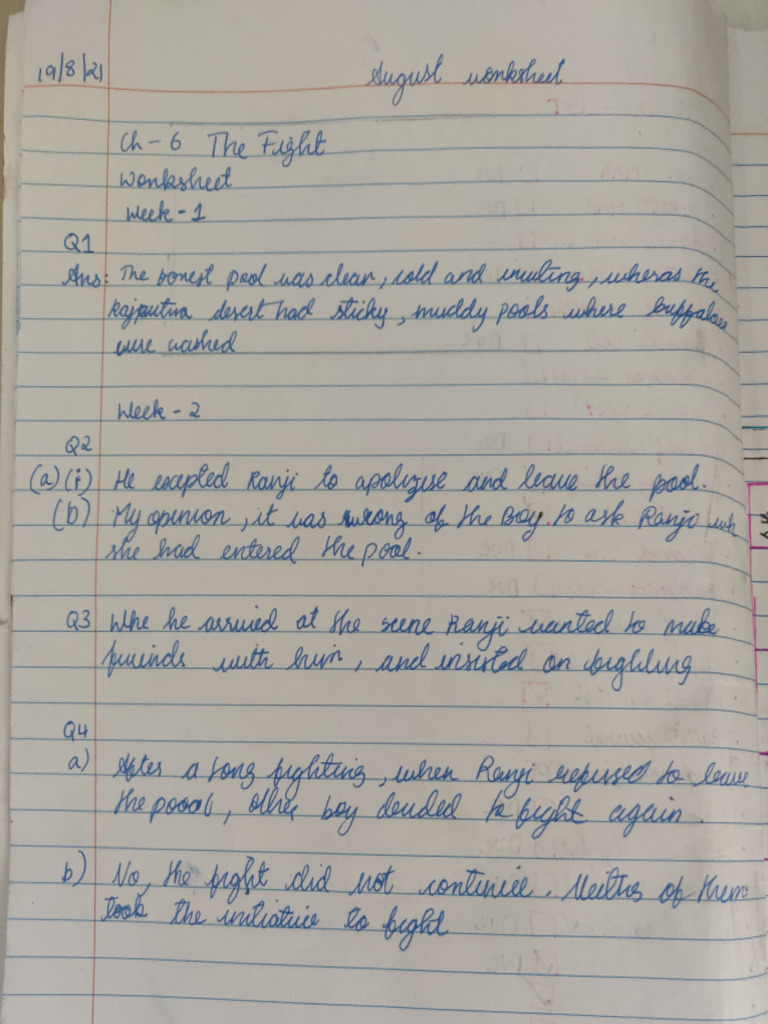 19/8/21
August worksheet
Ch-6 The Fight
Worksheet
Week-1
Q1
Ans: The forest pool was clear, cold and inviting, wheras the
Rajputna desert had sticky, muddy pools where buffaloes
were washed
Week-2
Q2
(a) (i) He excpted Ranji to apologise and leave the pool.
(b) My opinion, it was wrong of the Boy to ask Ranji wh
she had entered the pool.
Q3 Whe he arrived at the scene Ranji wanted to make
friends with him, and insisted on fighting
Q4
a) After a long fighting, when Ranji refused to leave
the pooal, other boy decided to fight again.
b) No, the fight did not continue. Neither of them
took the initiative to fight